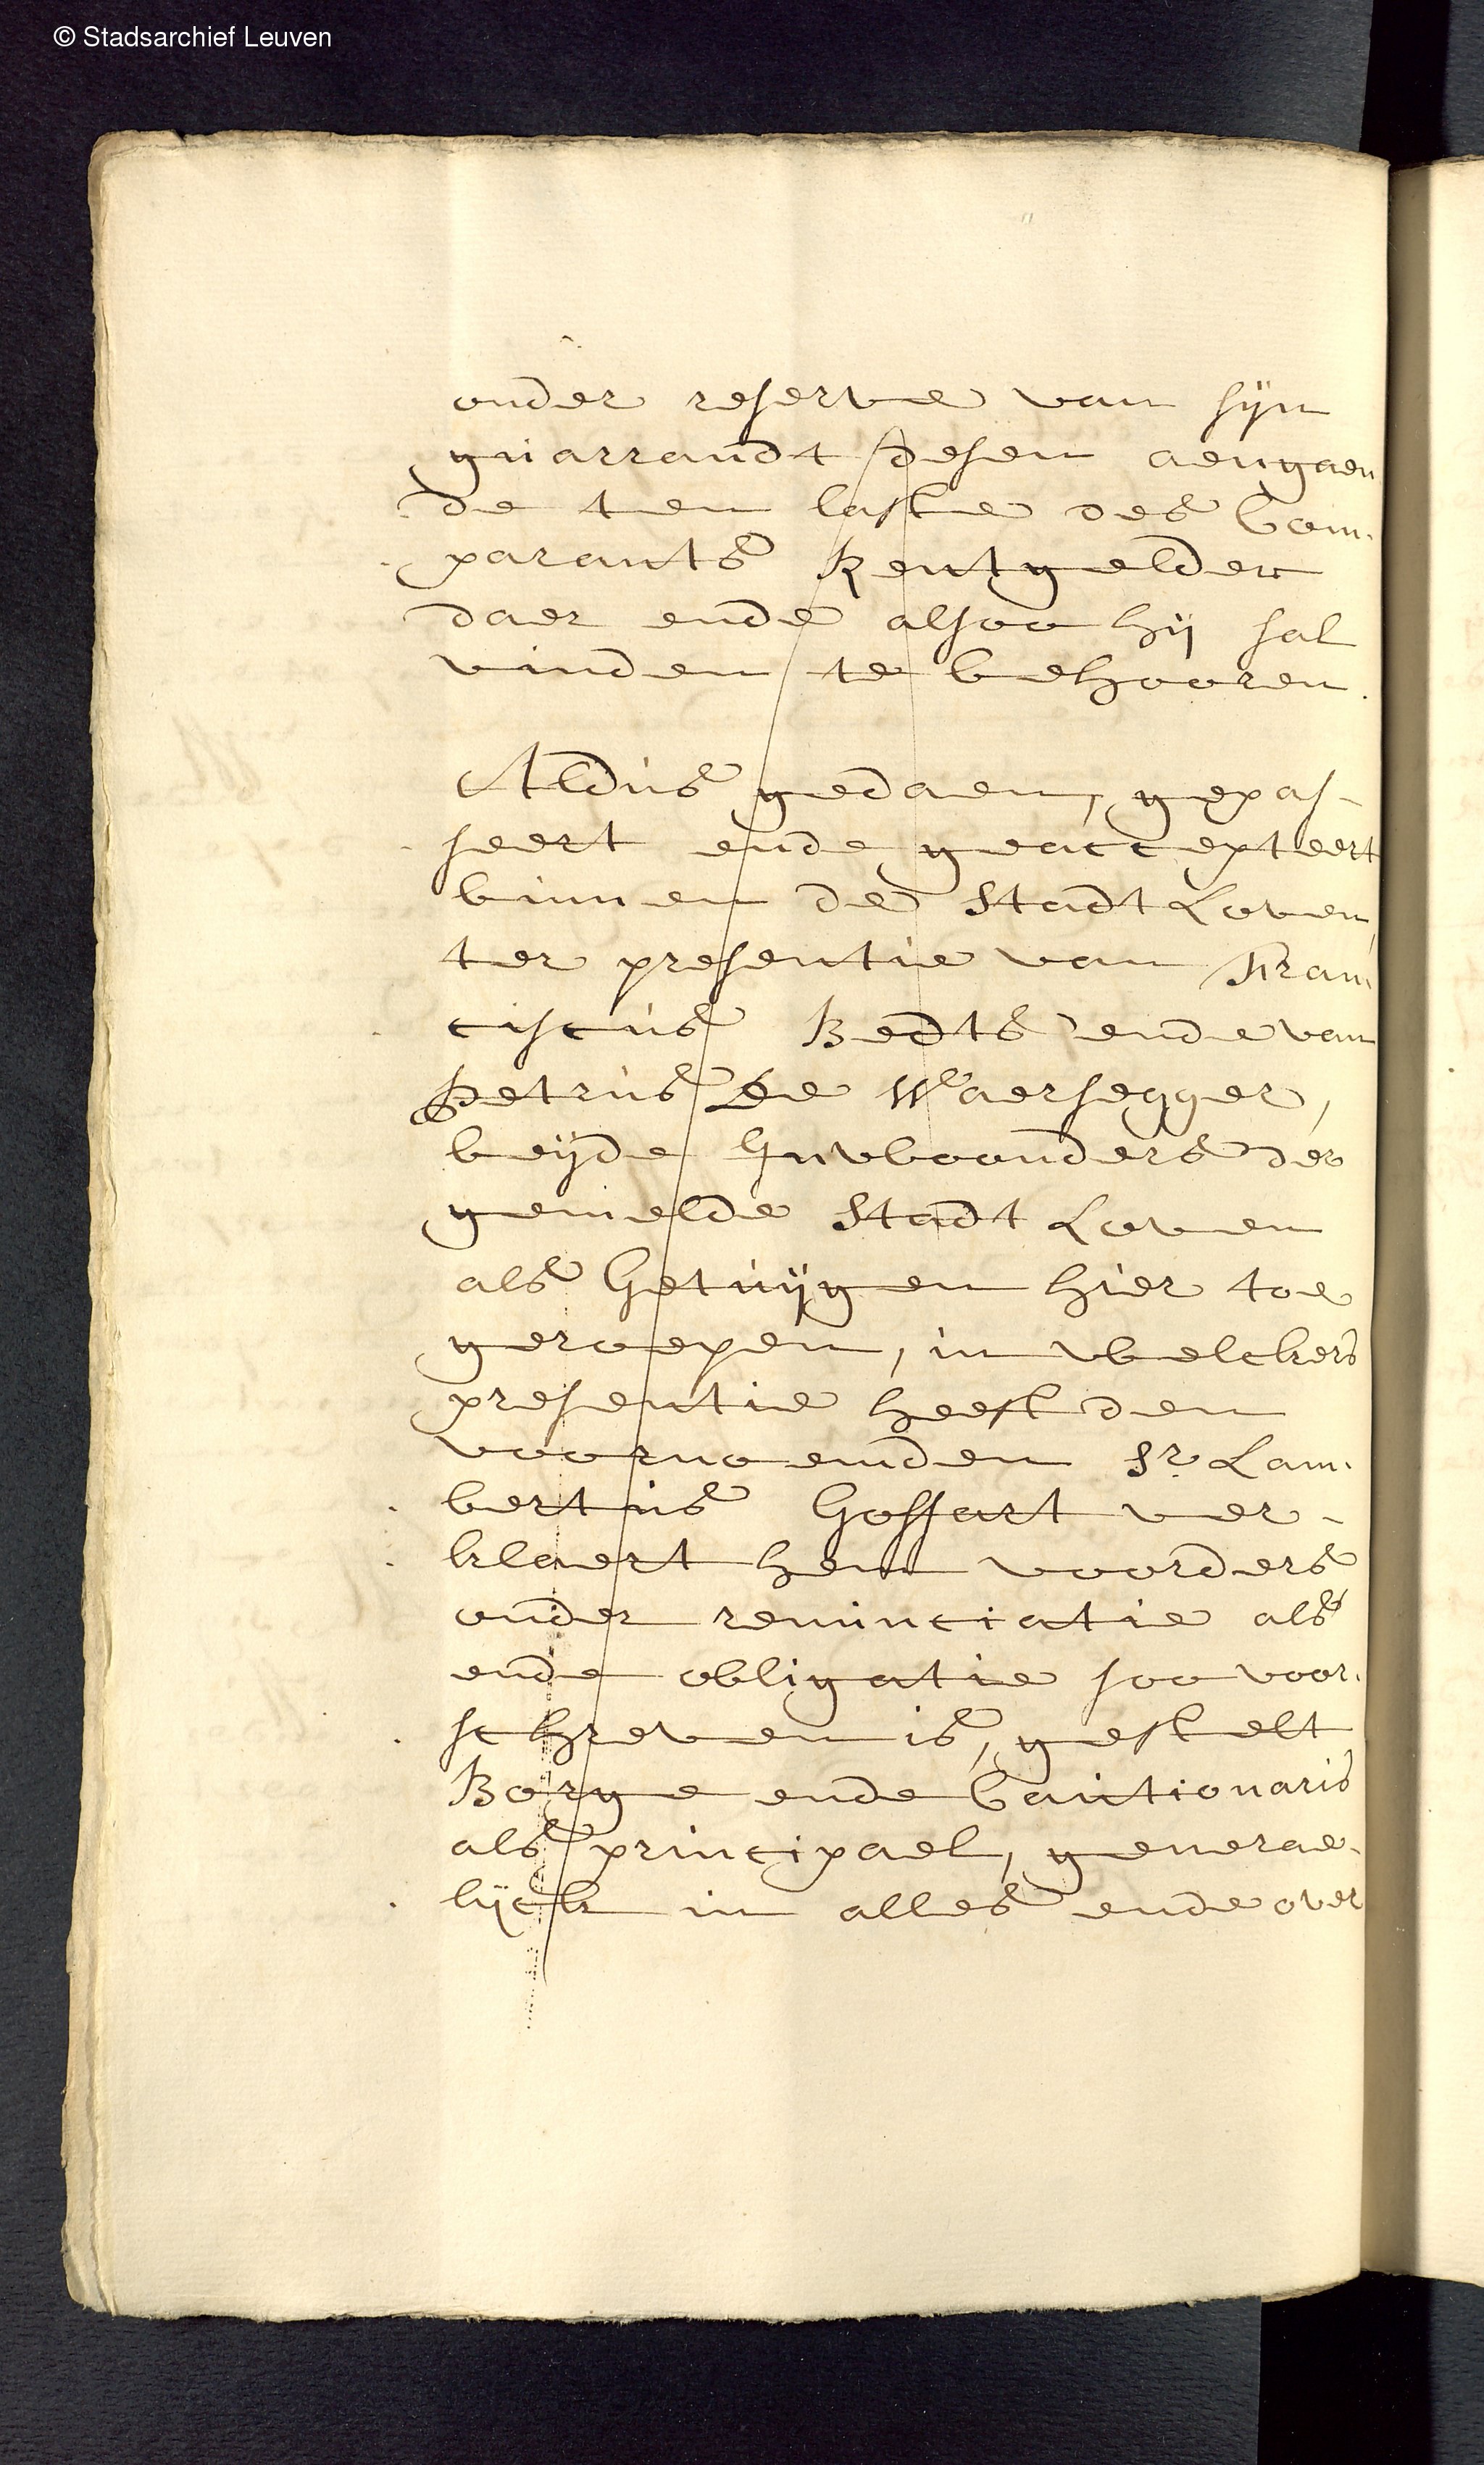 © Stadsarchief Leuven
onder reserve van sijn
guarrandt desen aengaen
de ten laste des Com-
parants Rentgelder
daer ende alsoo hij sal
vinden te behooren.
Aldus gedaen, gepas-
seert ende geaccepteert
binnen de Stadt Loven,
ter presentie van Fran-
ciscus Bedts ende van
Petrus De Waersegger,
beijde Inwoonders der
gemelde Stadt Loven
als Getuijgen hier toe
geroepen, in welckers
presentie heeft den
voornoemden Sr. Lam-
bertus Gossart ver-
klaert hem voorders
onder renunciatie als
ende obligatie soo voor-
schreven is, gestelt
Borge ende Cautionaris
als principael, generae-
lijck in alles ende over